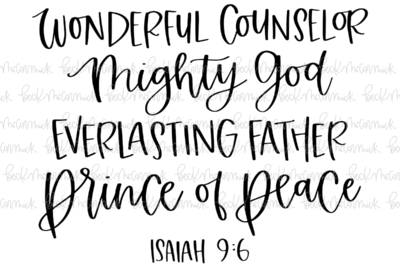 WONDERFUL COUNSELOR
Mighty God
EVERLASTING FATHER
Prince of Peace
ISAIAH 9:6